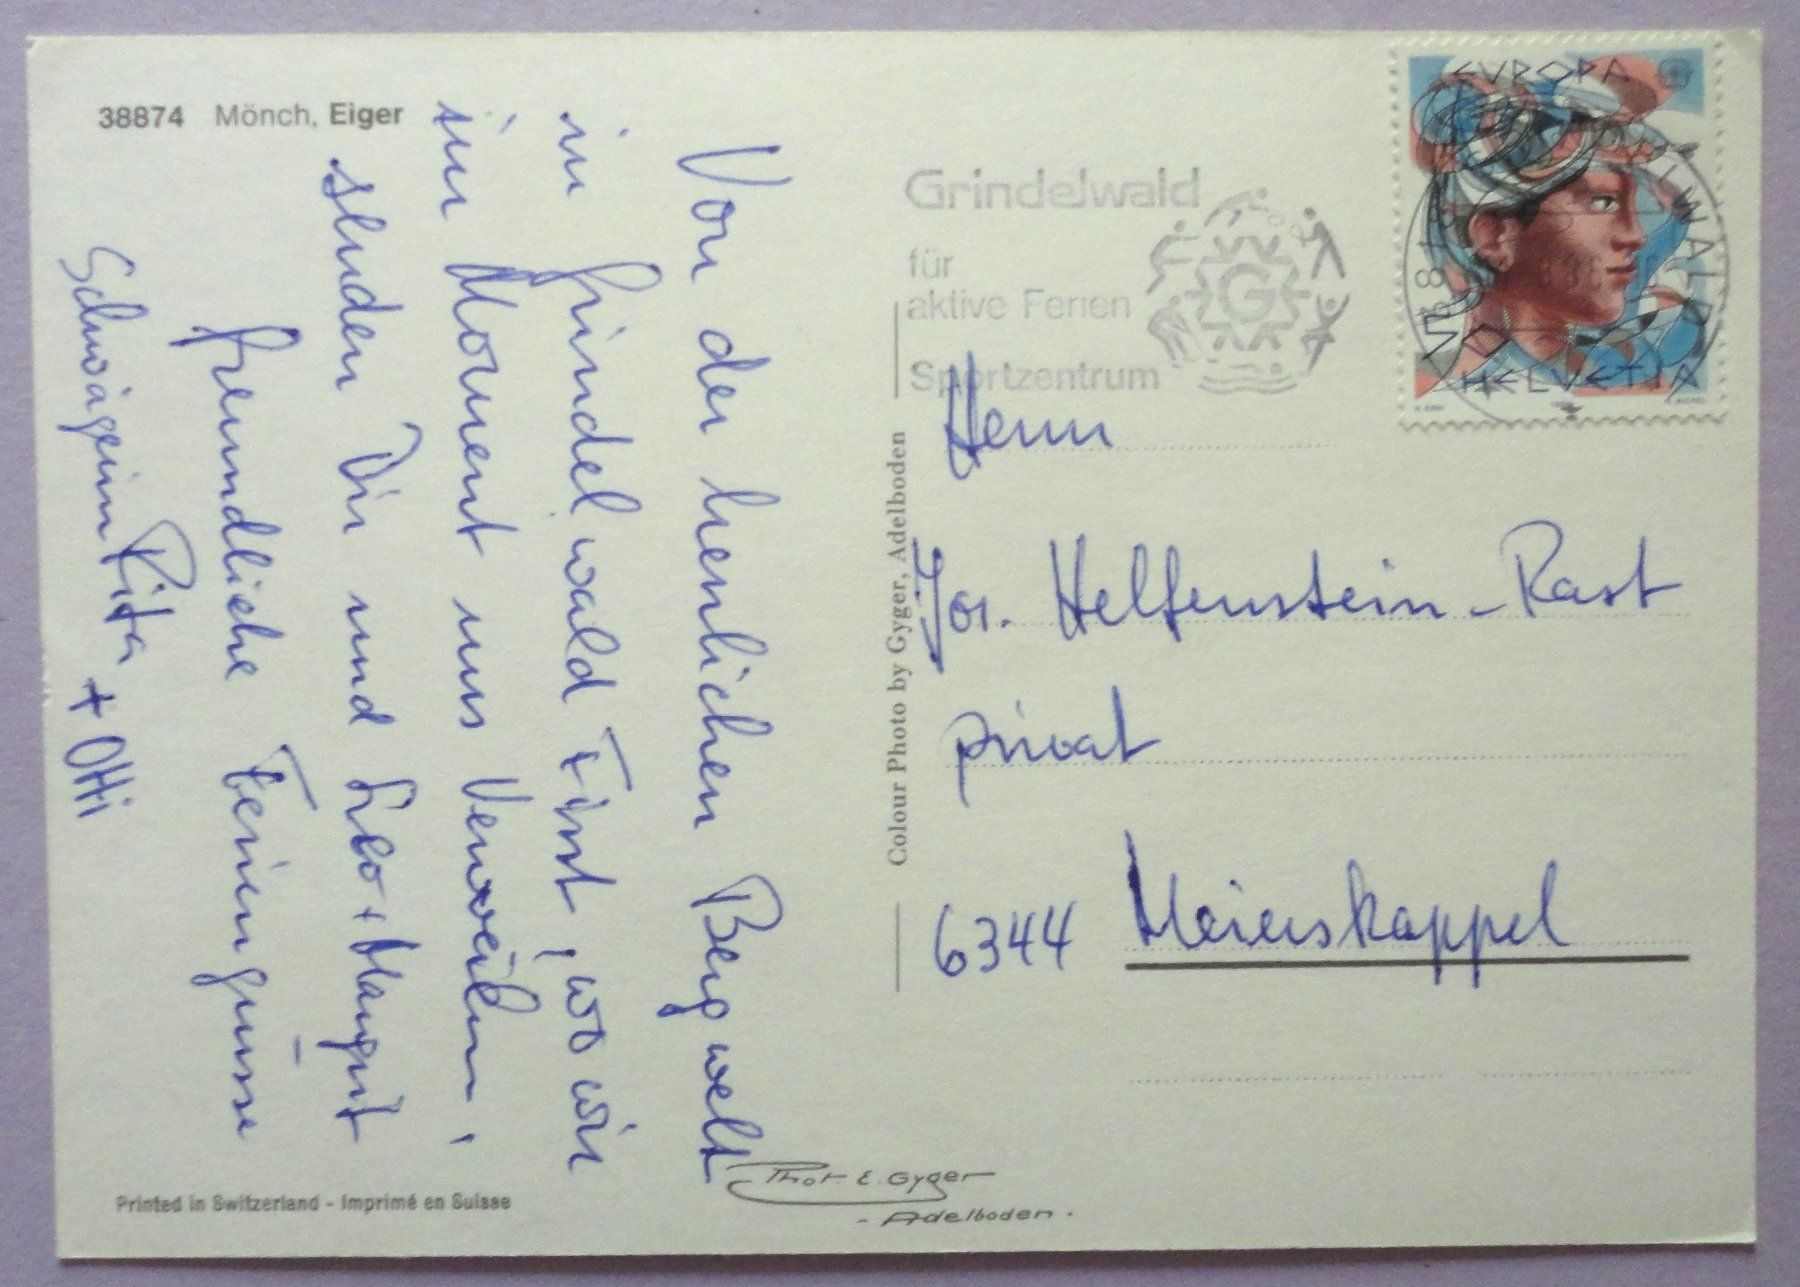 38874 Mönch, Eiger
Von der herrlichen Bergwelt
in Grindelwald First, wo wir
im Moment uns verweilen,
senden Dir und Leo + Margrit
freundliche Feriengrüsse
Schwägerin Rita + Otti
Printed in Switzerland - Imprimé en Suisse
Colour Photo by Gyger, Adelboden
Phot. E. Gyger
- Adelboden -
Grindelwald
für
aktive Ferien
G
Sportzentrum
EUROPA
HELVETIA
Herrn
Jos. Helfenstein-Rast
privat
6344 Meierskappel